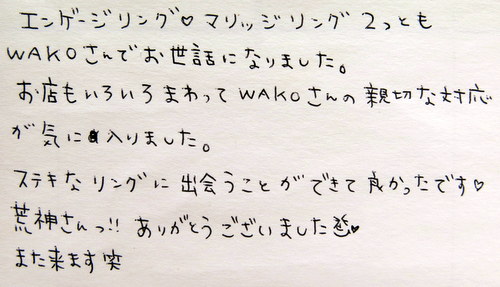 エンゲージリング♡マリッジリング 2つとも
WAKOさんでお世話になりました。
お店もいろいろまわってWAKOさんの親切な対応
が気に入りました。
ステキなリングに出会うことができて良かったです♡
荒神さんっ!! ありがとうございました♥
また来ます笑